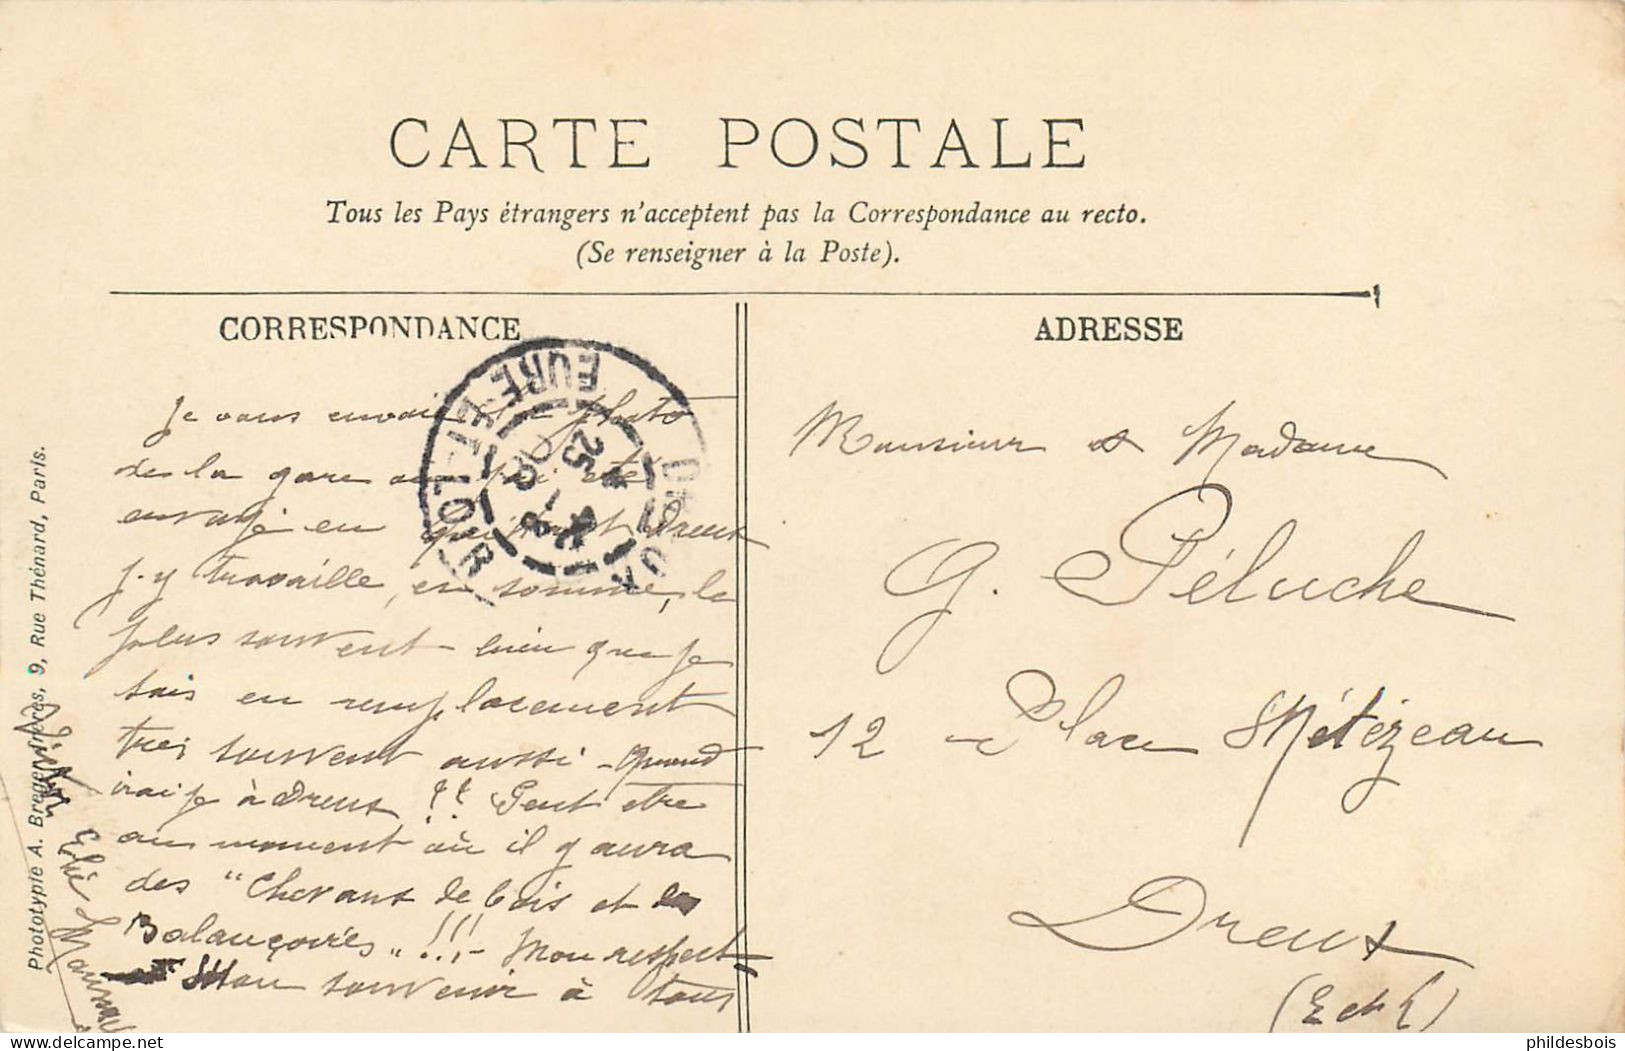 CARTE POSTALE
Tous les Pays étrangers n'acceptent pas la Correspondance au recto.
(Se renseigner à la Poste).
CORRESPONDANCE
Je vous envoie la photo
de la gare où j'ai été
envoyé en quittant Dreux
J'y travaille, en somme, le
plus souvent - bien que je
sois en remplacement
très souvent aussi - Quand
irai je à Dreux ?? Peut être
au moment où il y aura
des "Chevaux de bois et
Balançoires" !!! - Mon respect,
Mon souvenir à tous
ADRESSE
Monsieur & Madame
G. Péluche
12 Place Métézeau
Dreux
(E et L)
EURE-ET-LOIR
25
Phototypie A. Breger frères, 9, Rue Thénard, Paris.
phildesbois